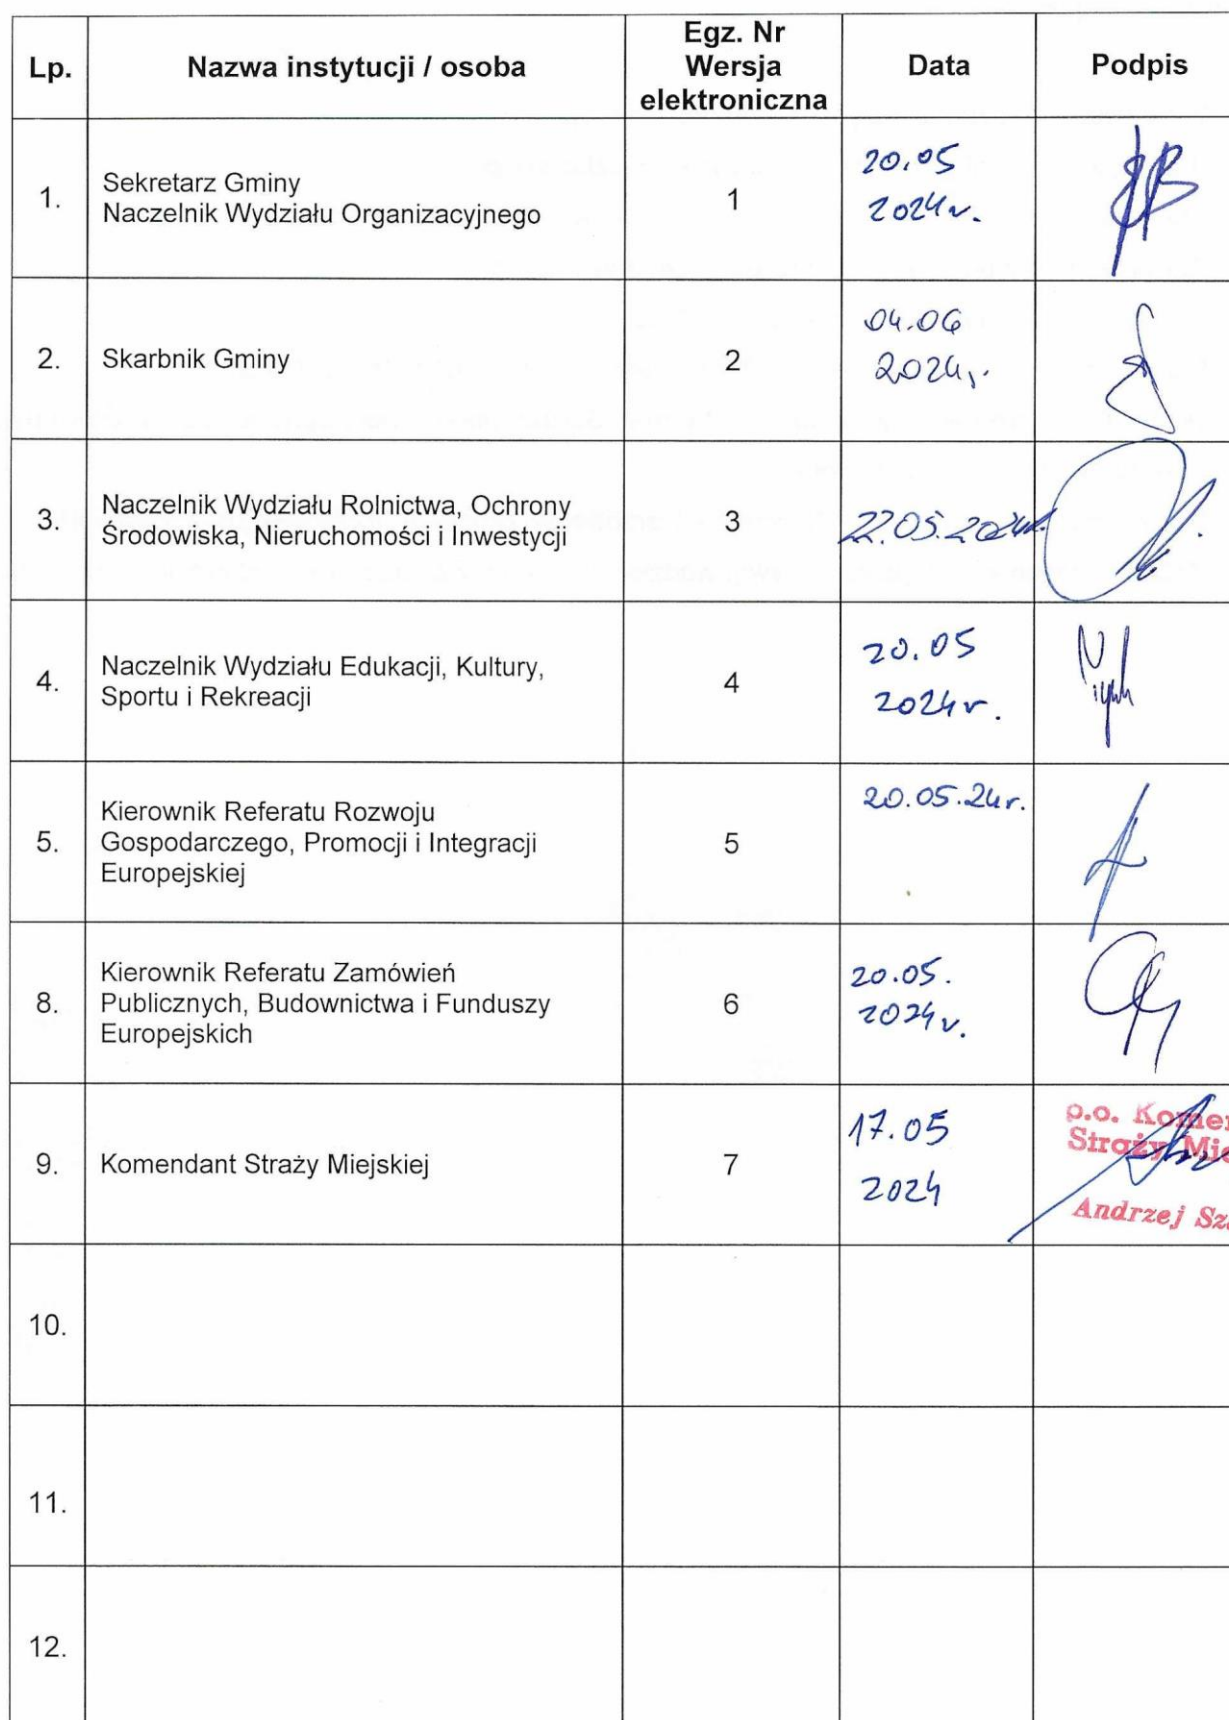 Lp.
Nazwa instytucji / osoba
Egz. Nr
Wersja
elektroniczna
Data
Podpis
1.
Sekretarz Gminy
Naczelnik Wydziału Organizacyjnego
1
20.05
2024r.
2.
Skarbnik Gminy
2
04.06
2024r.
3.
Naczelnik Wydziału Rolnictwa, Ochrony
Środowiska, Nieruchomości i Inwestycji
3
22.05.2024r.
4.
Naczelnik Wydziału Edukacji, Kultury,
Sportu i Rekreacji
4
20.05
2024r.
5.
Kierownik Referatu Rozwoju
Gospodarczego, Promocji i Integracji
Europejskiej
5
20.05.24r.
8.
Kierownik Referatu Zamówień
Publicznych, Budownictwa i Funduszy
Europejskich
6
20.05.
2024r.
9.
Komendant Straży Miejskiej
7
17.05
2024
p.o. Komen
Straży Mie
Andrzej Sz
10.
11.
12.